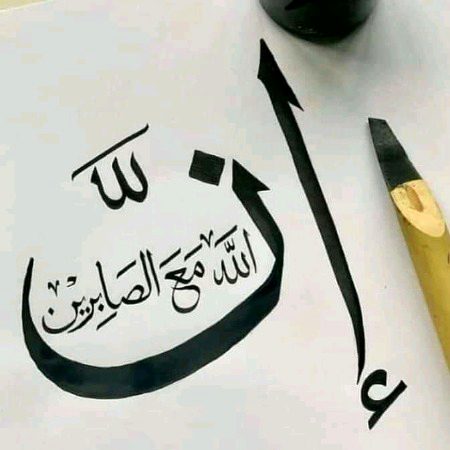 إنّ
اللّٰه مَعَ الصَابِرِين